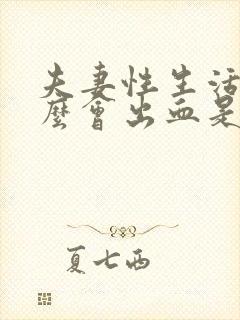 夫妻性生活
麼會出血是
夏七西